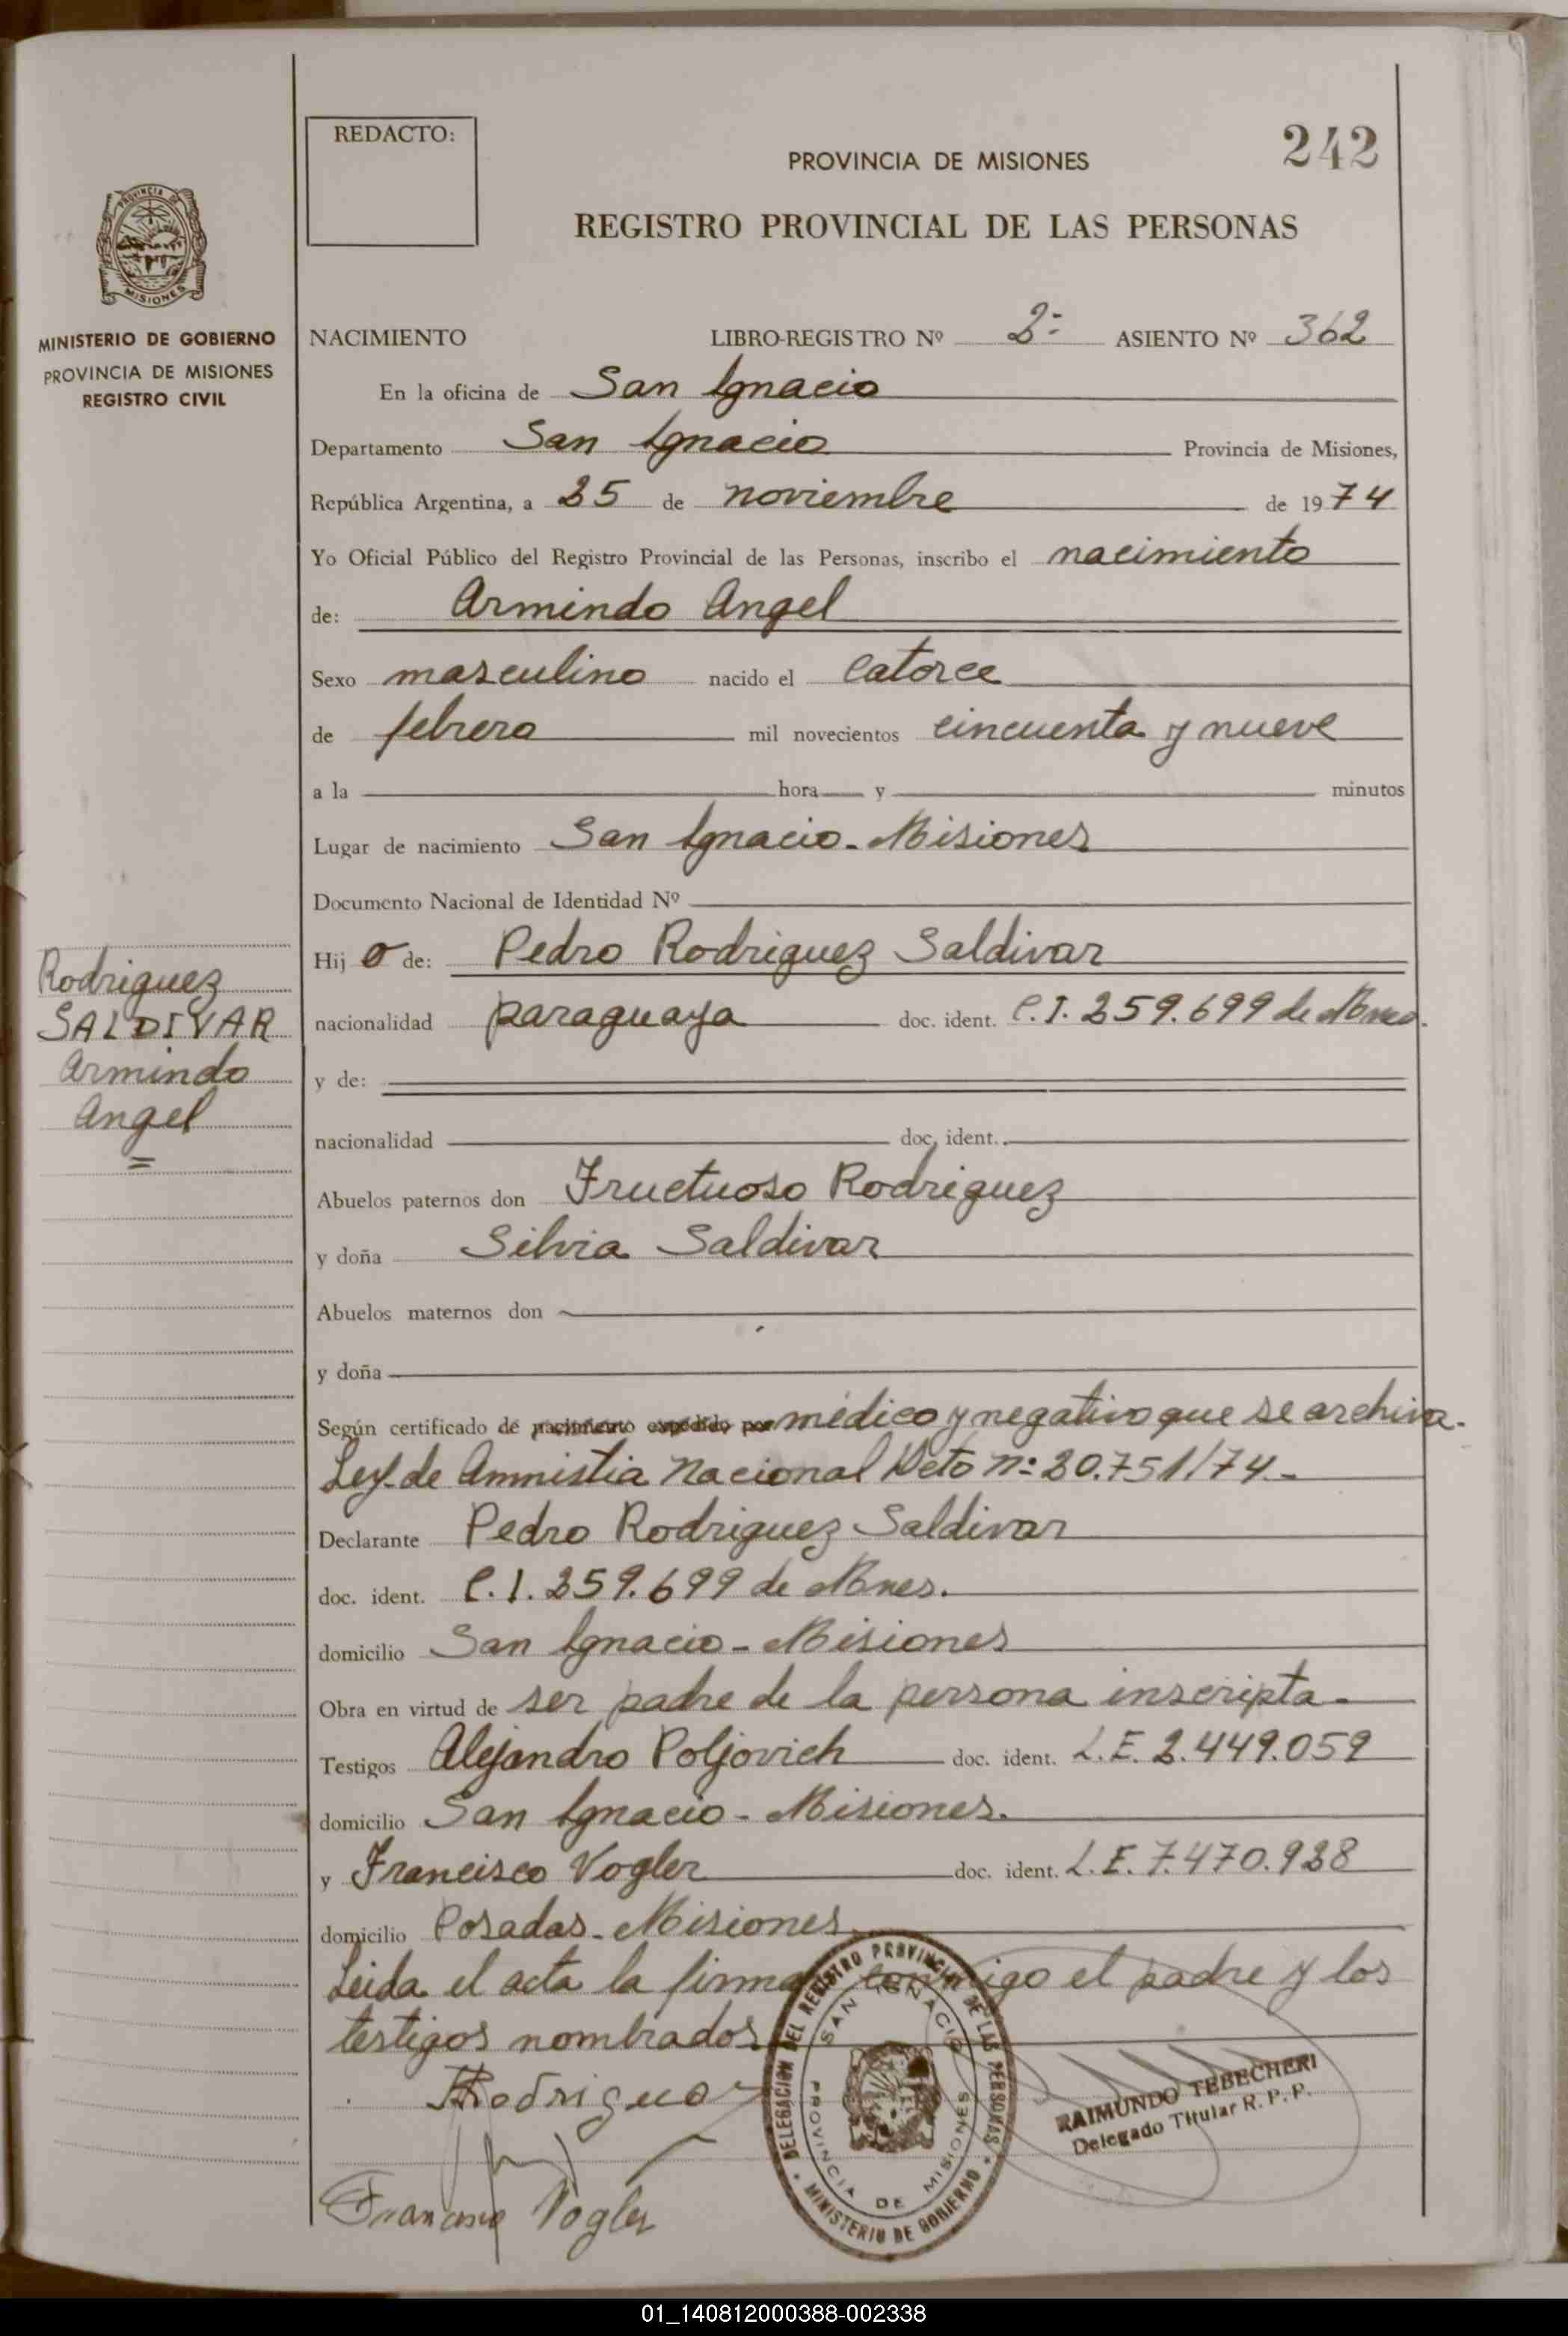 REDACTO:
PROVINCIA DE MISIONES
242
REGISTRO PROVINCIAL DE LAS PERSONAS
PROVINCIA DE
MISIONES
MINISTERIO DE GOBIERNO
PROVINCIA DE MISIONES
REGISTRO CIVIL
NACIMIENTO LIBRO-REGISTRO Nº 2º ASIENTO Nº 362
En la oficina de San Ignacio
Departamento San Ignacio Provincia de Misiones,
República Argentina, a 25 de noviembre de 1974
Yo Oficial Público del Registro Provincial de las Personas, inscribo el nacimiento
de: Armindo Angel
Sexo masculino nacido el catorce
de febrero mil novecientos cincuenta y nueve
a la hora y minutos
Lugar de nacimiento San Ignacio - Misiones
Documento Nacional de Identidad Nº
Hijo de: Pedro Rodriguez Saldivar
nacionalidad paraguaya doc. ident. C.I. 259.699 de Mnes.
y de:
nacionalidad doc. ident.
Rodriguez
SALDIVAR
Armindo
Angel
Abuelos paternos don Fructuoso Rodriguez
y doña Silvia Saldivar
Abuelos maternos don
y doña
Según certificado de nacimiento expedido por médico y negativo que se archiva.
Ley de Amnistia Nacional Dto Nº 20.751/74.-
Declarante Pedro Rodriguez Saldivar
doc. ident. C.I. 259.699 de Mnes.
domicilio San Ignacio - Misiones
Obra en virtud de ser padre de la persona inscripta.
Testigos Alejandro Poljovich doc. ident. L.E. 2.449.059
domicilio San Ignacio - Misiones.
y Francisco Vogler doc. ident. L.E. 7.470.928
domicilio Posadas - Misiones.
Leida el acta la firman conmigo el padre y los
testigos nombrados
Rodriguez
Francisco Vogler
DELEGACION DEL REGISTRO PROVINCIAL DE LAS PERSONAS
SAN IGNACIO
PROVINCIA DE MISIONES
MINISTERIO DE GOBIERNO
RAIMUNDO TEBECHERI
Delegado Titular R. P. P.
01_140812000388-002338